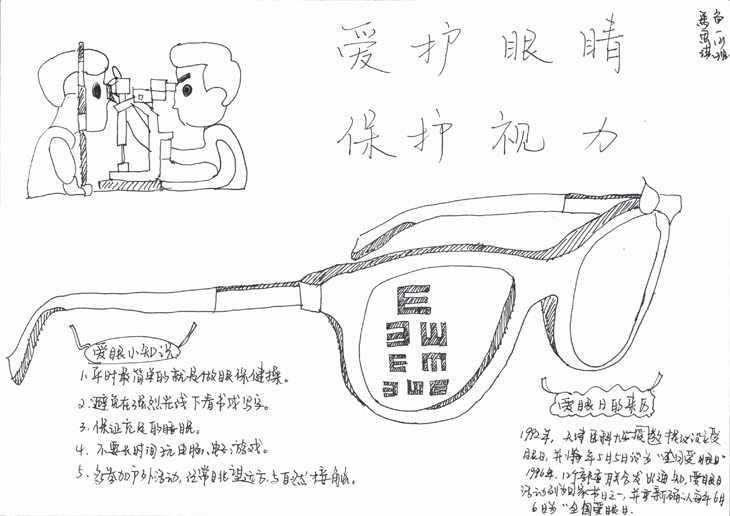 爱护眼睛
保护视力
爱眼小知识
1. 平时最简单的就是做眼保健操。
2. 避免在强烈光线下看书或写字。
3. 保证充足的睡眠。
4. 不要长时间玩电脑、电子游戏。
5. 多参加户外活动，经常眺望远方，与自然接触。
爱眼日的来历
1992年，天津医科大学教授提议设立爱
眼日，并将每年5月5日设为“全国爱眼日”
1996年，12个部委联合发出通知，爱眼日
活动列为国家节日之一，并重新确认每年6月
6日为“全国爱眼日